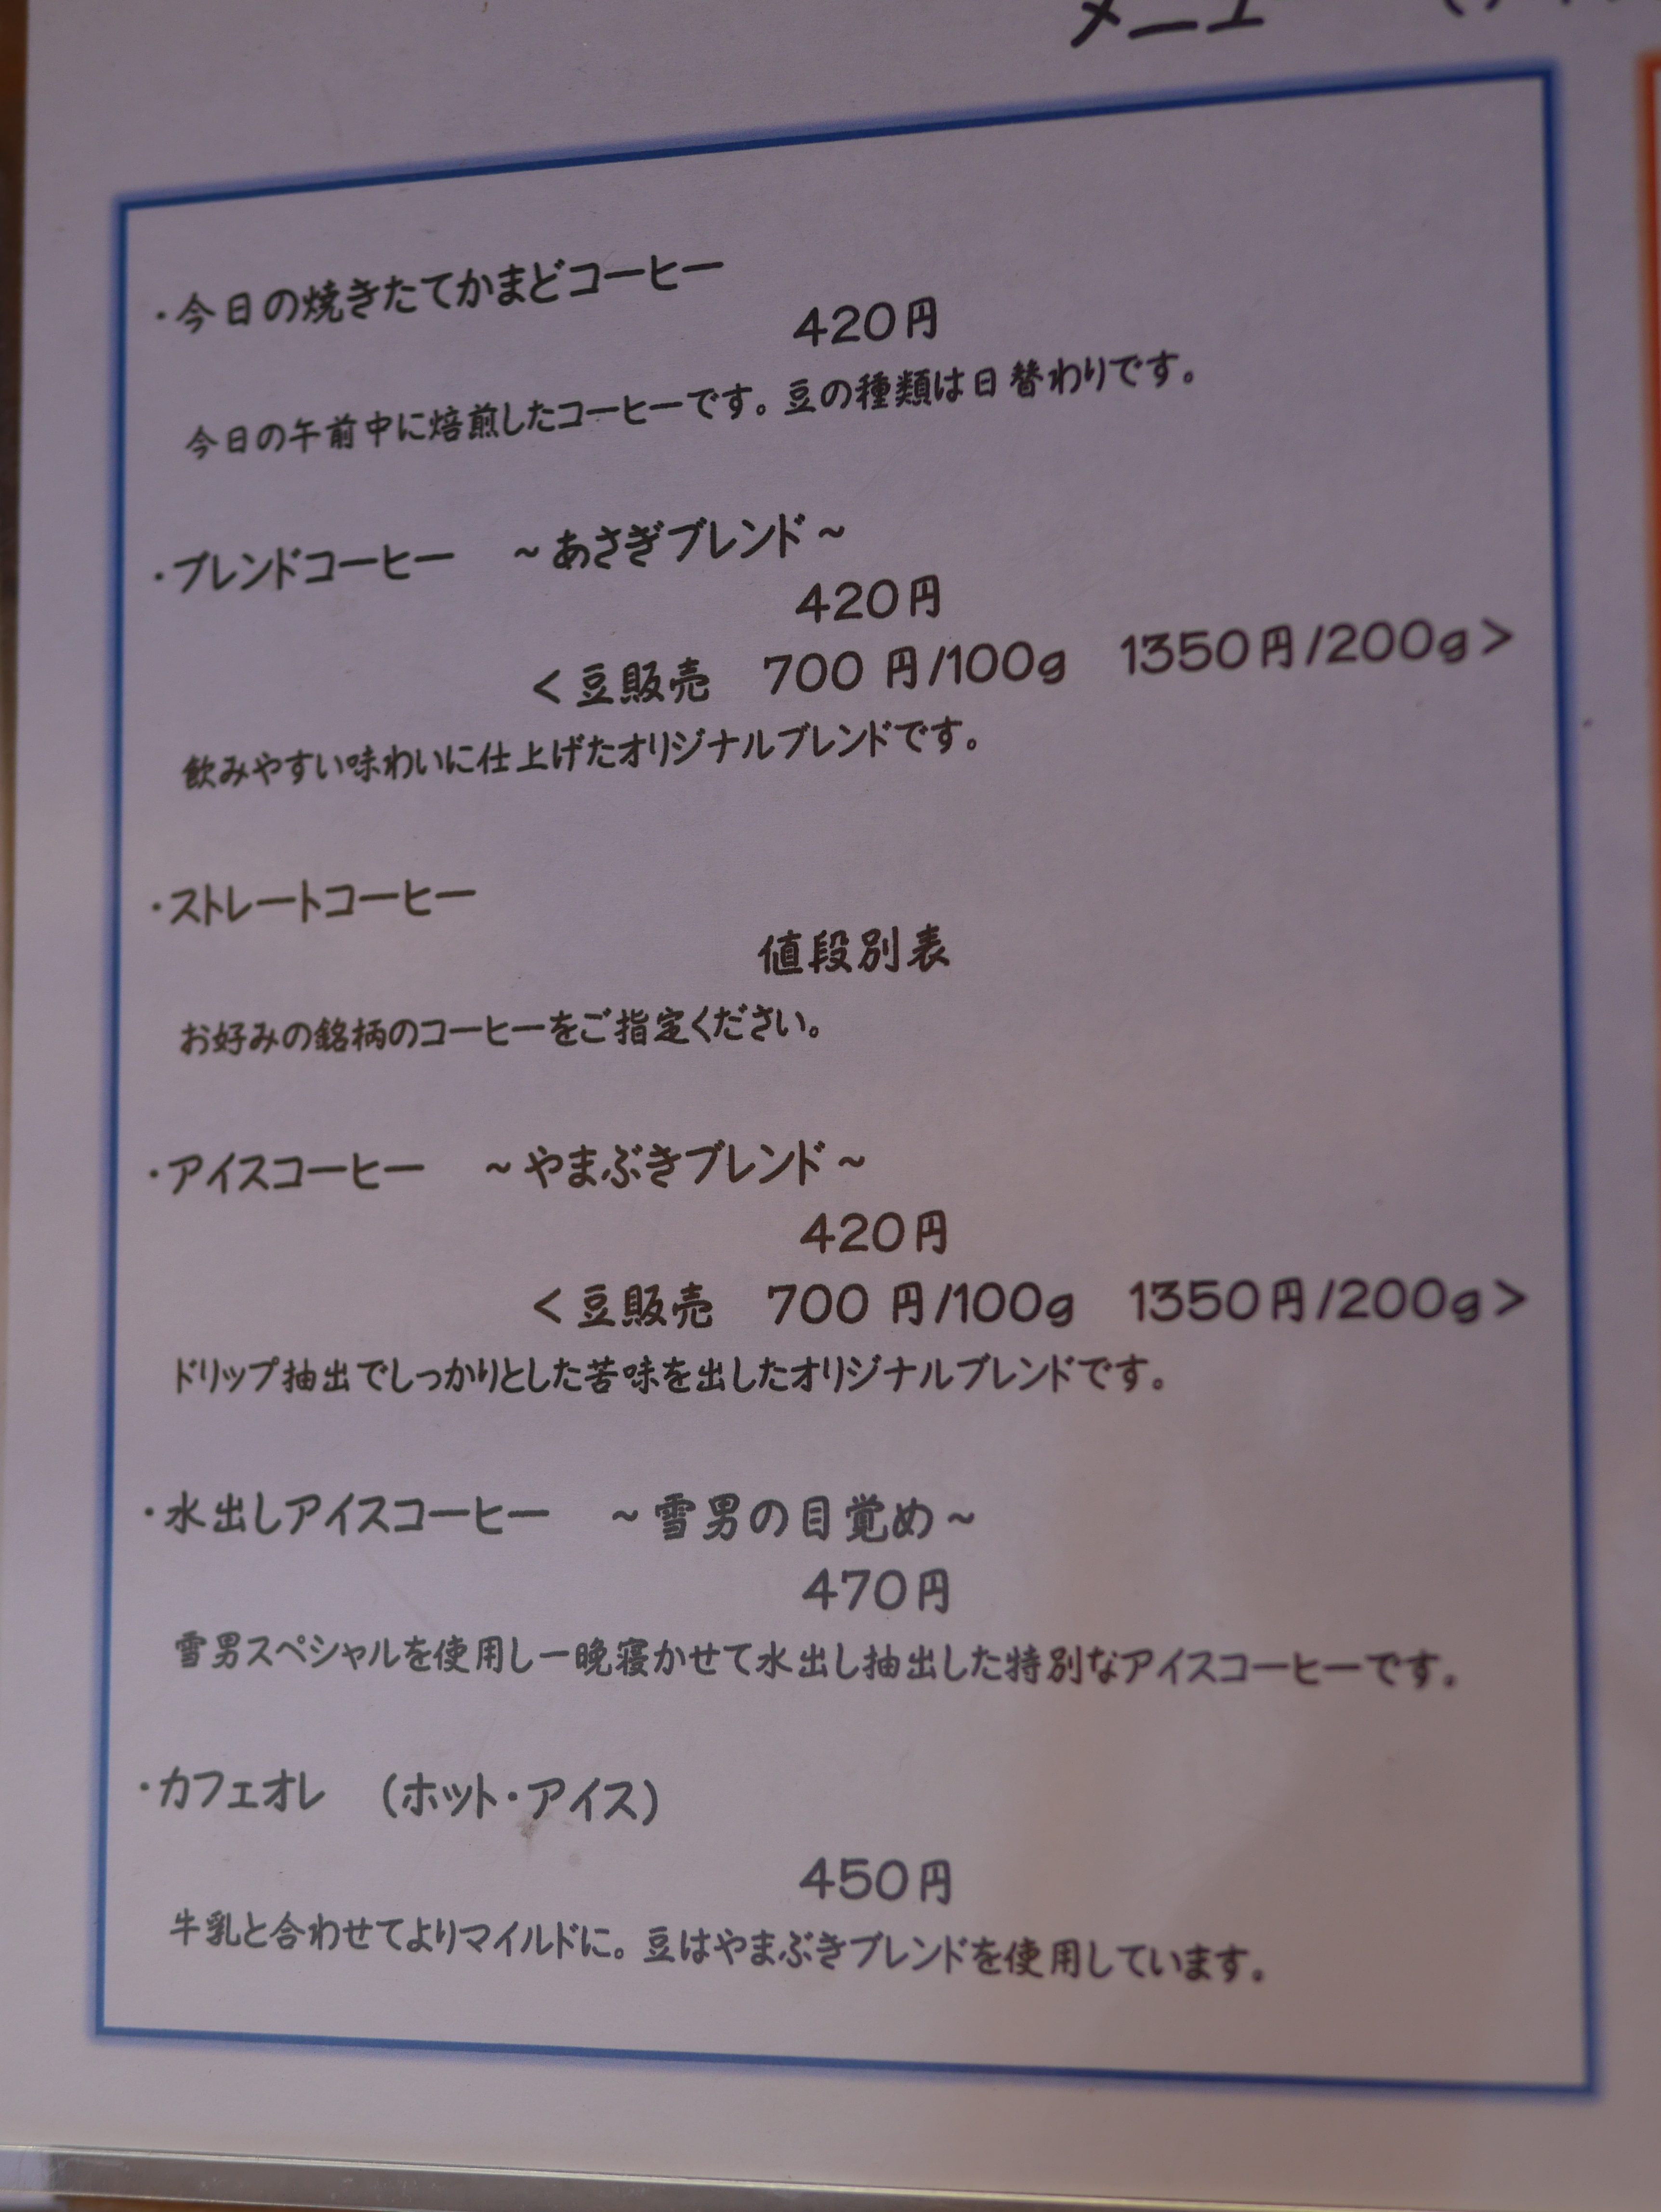 メニュー
・今日の焼きたてかまどコーヒー
420円
今日の午前中に焙煎したコーヒーです。豆の種類は日替わりです。
・ブレンドコーヒー ~あさぎブレンド~
420円
<豆販売 700円/100g 1350円/200g>
飲みやすい味わいに仕上げたオリジナルブレンドです。
・ストレートコーヒー
値段別表
お好みの銘柄のコーヒーをご指定ください。
・アイスコーヒー ~やまぶきブレンド~
420円
<豆販売 700円/100g 1350円/200g>
ドリップ抽出でしっかりとした苦味を出したオリジナルブレンドです。
・水出しアイスコーヒー ~雪男の目覚め~
470円
雪男スペシャルを使用し一晩寝かせて水出し抽出した特別なアイスコーヒーです。
・カフェオレ (ホット・アイス)
450円
牛乳と合わせてよりマイルドに。豆はやまぶきブレンドを使用しています。